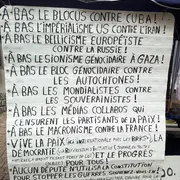 -À BAS LE BLOCUS CONTRE CUBA !
-À BAS L'IMPÉRIALISME US CONTRE L'IRAN !
-À BAS LE BELLICISME EUROPÉISTE
CONTRE LA RUSSIE !
-À BAS LE SIONISME GÉNOCIDAIRE À GAZA !
-À BAS LE BLOC GÉNOCIDAIRE CONTRE
LES AUTOCHTONES !
-À BAS LES MONDIALISTES CONTRE
LES SOUVERAINISTES !
-À BAS LES MÉDIAS COLLABOS QUI
CENSURENT LES PARTISANS DE LA PAIX !
-À BAS LE MACRONISME CONTRE LA FRANCE !
-VIVE LA PAIX
DÉMOCRATIE ET LE PROGRÈS
POUR TOUS !
AUCUN DÉPUTÉ LA CONSTITUTION
POUR STOPPER LES GUERRES